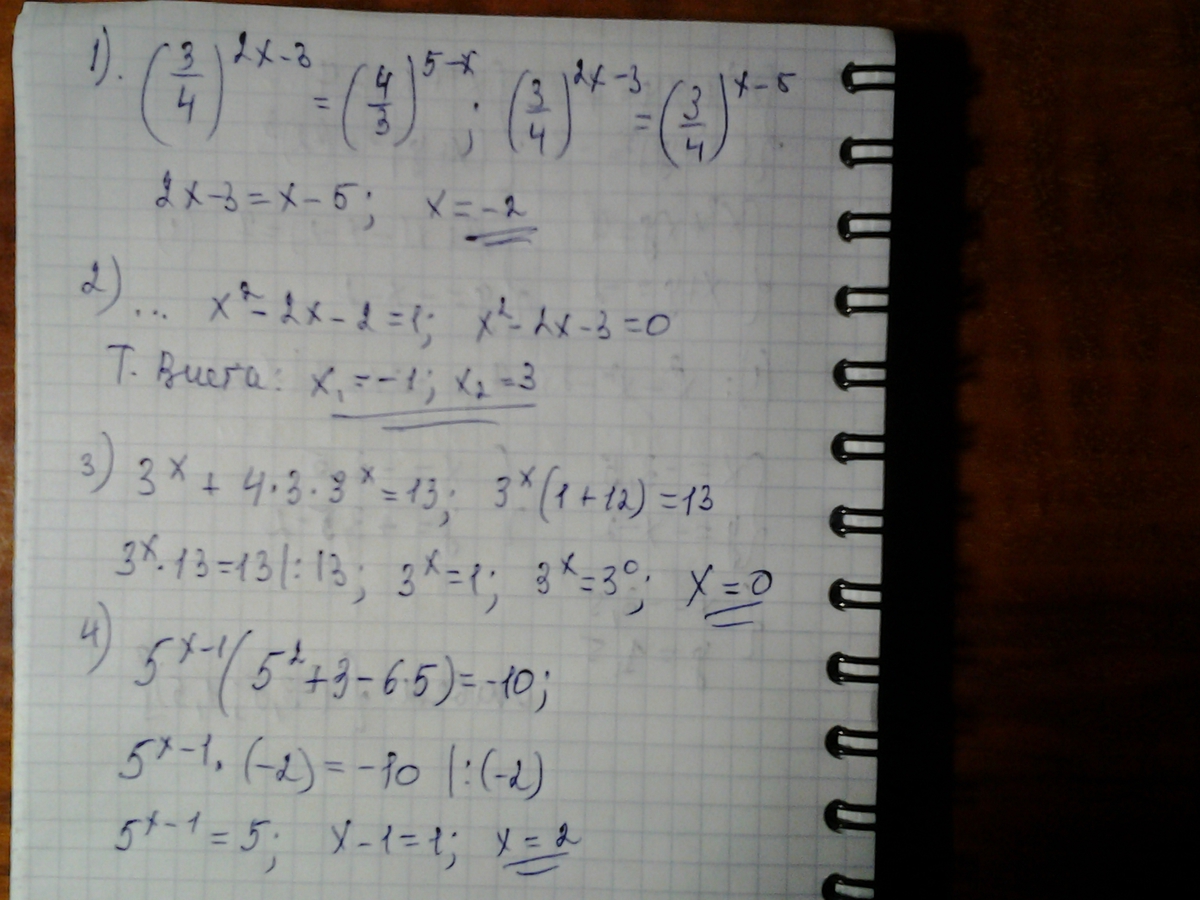 1). (3/4)^(2x-3) = (4/3)^(5-x); (3/4)^(2x-3) = (3/4)^(x-5)
2x-3=x-5; x=-2
2) ... x²-2x-2=1; x²-2x-3=0
Т. Виета: x₁=-1; x₂=3
3) 3^x + 4·3·3^x=13; 3^x(1+12)=13
3^x·13=13|:13; 3^x=1; 3^x=3^0; x=0
4) 5^(x-1)(5²+3-6·5)=-10;
5^(x-1)·(-2)=-10 |:(-2)
5^(x-1)=5; x-1=1; x=2